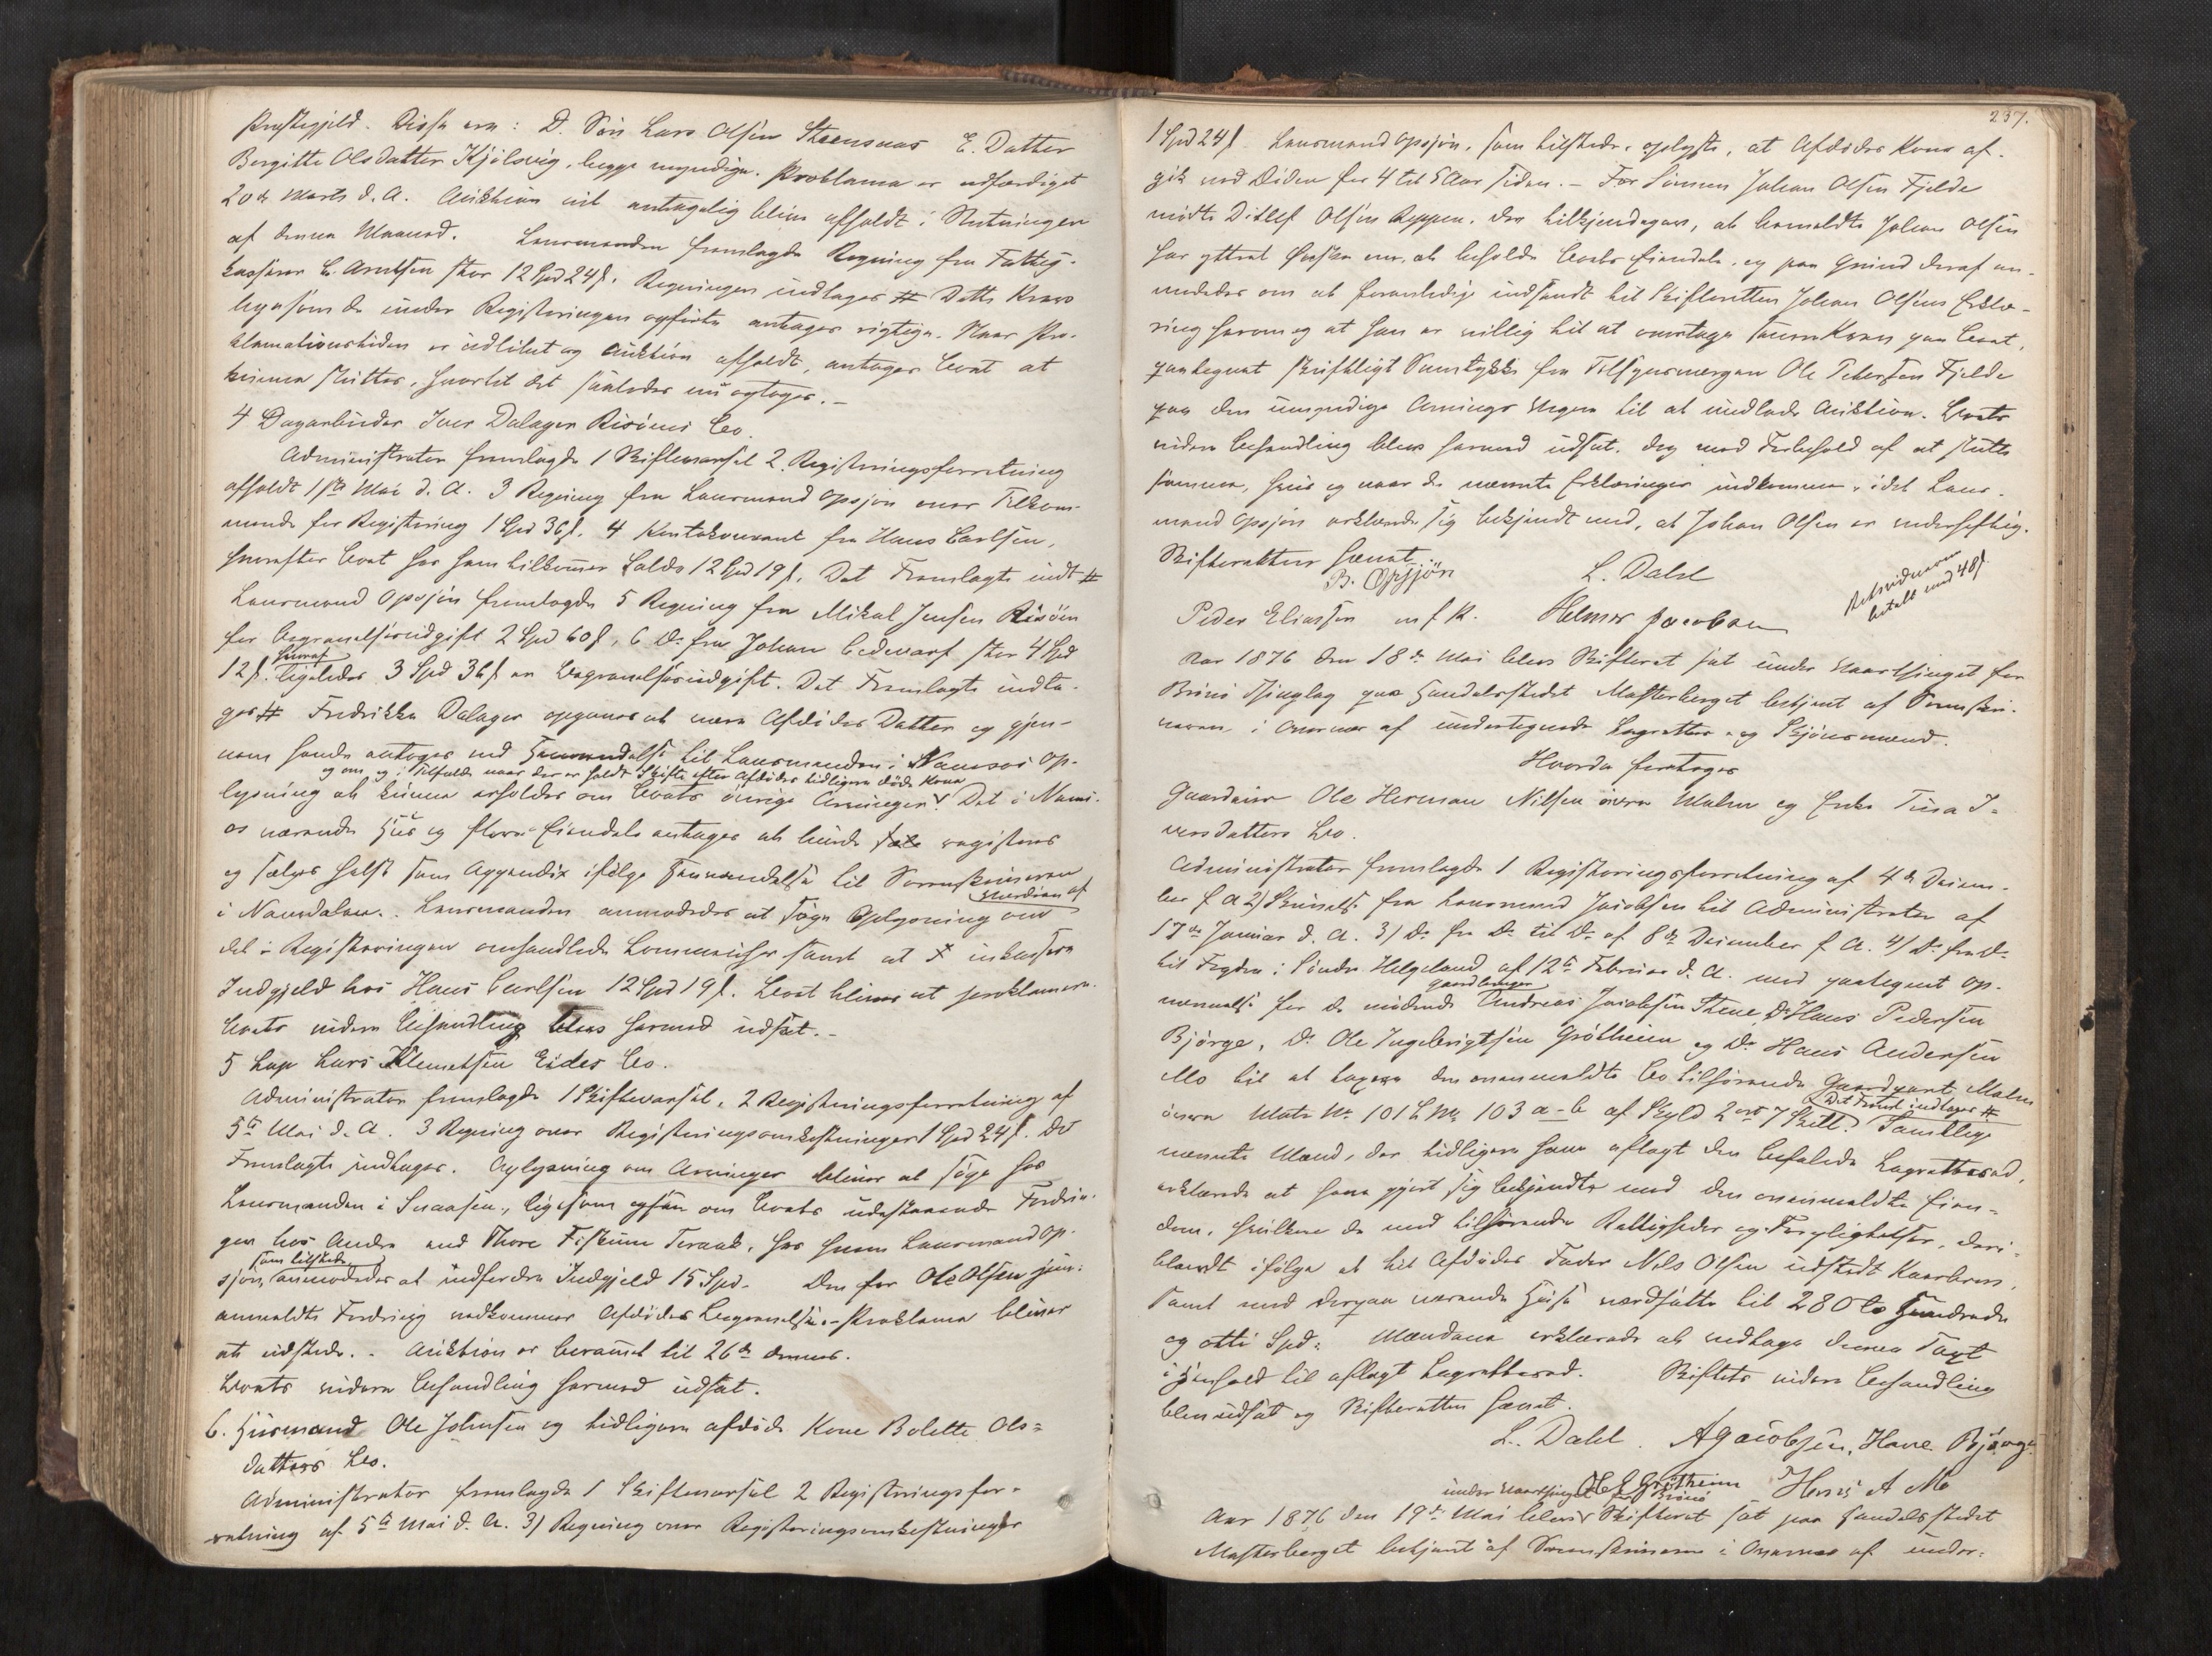 Præstegjeld. Disse ere: D. Søn Lars Olsen Steensnæs E. Datter
Bergitte Olsdatter Kjölsvig, begge myndige. Proklama er udfærdiget
20de Marts d. A. Auktion vil antagelig blive afholdt i Slutningen
af denne Maaned. Lensmanden fremlagde Regning fra Fattig-
kasserer C. Arntsen stor 12 Spd 24 s. Regningen indtages # Dette Krav
ligesom de under Registeringen opførte antages rigtige. Naar Pro-
klamationstiden er udløbet og Auktion afholdt, antages Boet at
kunne sluttes, hvortil det saaledes nu optoges.-
4 Dagarbeider Iver Dalager Risöens Bo.
Administrator fremlagde 1 Skiftevarsel 2. Registreringsforretning
afholdt 1ste Mai d. A. 3 Regning fra Lensmand Opsjön over Tilkom-
mende for Registering 1 Spd 36 s. 4 Kontokourant fra Hans Carlsen,
hvorefter Boet hos ham tilkommer Saldo 12 Spd 19 s. Det Fremlagte indt #
Lensmand Opsjön fremlagde 5 Regning fra Mikal Jensen Risöen
for Begravelsesudgift 2 Spd 60 s, 6 Do fra Johan Cedevarf stor 4 Spd
hvoraf
12 s. ligeledes 3 Spd 36 s er Begravelsesudgift. Det Fremlagte indta-
ges # Fredrikke Dalager opgaves at være Afdødes Datter og gjen-
nem hende antoges ved Henvendelse til Lensmanden i Namsos Op-
og om og i Tilfælde naar der er holdt Skifte efter Afdødes tidligere døde Kone
lysning at kunne erholdes om Boets øvrige Arvinger. Det i Nams-
os værende Huus og flere Eiendele antages at burde registeres
og sælges helst som Appendix ifølge Henvendelse til Sorenskriveren
Værdien af
i Namdalen. Lensmanden anmodedes at søge Oplysning om
det i Registeringen omhandlede Lommeuhr samt at inkassere
Indgjeld hos Hans Carlsen 12 Spd 19 s. Boet bliver at proklamere.
Boets videre Behandling blev hermed udsat.-
5 Lap Lars Klemetsen Eides Bo.
Administrator fremlagde 1 Skiftevarsel, 2 Registeringsforretning af
5te Mai d. A. 3 Regning over Registeringsomkostninger 1 Spd 24 s. Det
Fremlagte indtages. Oplysning om Arvinger bliver at søge hos
Lensmanden i Snaasen, ligesom ogsaa om Boets udestaaende Fordrin-
ger hos Andre ved Thore Fiskum Teraak, hos hvem Lensmand Op-
som tilstede
sjön, anmodedes at indfordre Indgjeld 15 Spd. Den for Ole Olsen jun:
anmeldte Fordring vedkommer Afdødes Begravelse. - Proklama bliver
at udstede. - Auktion er berammet til 26de dennes.
Boets videre Behandling hermed udsat.
6. Huusmand Ole Johnsen og tidligere afdøde Kone Bolette Ols=
datters Bo.
Administrator fremlagde 1 Skiftevarsel 2 Registringsfor-
retning af 5te Mai d. A. 3) Regning over Registeringsomkostninger
237.
1 Spd 24 s. Lensmand Opsjön, som tilstede, oplyste, at Afdødes Kone af-
gik ved Døden for 4 til 5 Aar siden. - For Sønnen Johan Olsen Fjelde
mødte Ditlef Olsen Reppen. Der tilkjendegav, at bemeldte Johan Olsen
har yttret Ønske om at beholde Boets Eiendele og paa Grund deraf an-
modedes om at foranledige indsendt til Skifteretten Johan Olsens Erklæ-
ring herom og at han er villig til at overtage samme Krav paa Boet,
paategnet skriftligt Samtykke fra Tilsynsværgen Ole Petersen Fjelde
paa den umyndige Arvings Vegne til at undlade Auktion. Boets
videre Behandling blev hermed udsat, dog med Forbehold af at slutte
samme, hvis og naar de nævnte Erklæringer indkomme, idet Lens-
mand Opsjön erklærede sig bekjendt med, at Johan Olsen er vederheftig.
Skifteretten hævet.
B. Opsjön L. Dahl
Retsvidnerne
betalt med 48 s.
Peder Eliassen m f P. Helmer Jacobsen
Aar 1876 den 18de Mai blev Skifteret sat under Vaarthinget for
Brönö Thinglag paa Handelsstedet Mosterberget betjent af Sorenskri-
veren i Overvær af undertegnede Lagrettes- og Skjönsmænd.
Hvorda foretages
Gaardeier Ole Herman Nilsen övre Malm og Enke Tina I-
versdatters Bo.
Administrator fremlagde 1 Registeringsforretning af 4de Decem-
ber f A 2) Skrivelse fra Lensmand Jacobsen til Administrator af
17de Januar d. A. 3) Do fra Do til Do af 8de December f. A. 4) Do fra Do
til Fogden i Söndre Helgeland af 12te Februar d. A. med paategnet Op-
gaardbruger
nævnelse for de mødende Andreas Jacobsen Stene, Do Hans Pedersen
Bjørge, Do Ole Ingebrigtsen Gröttheim og Do Hans Andersen
Mo til at taxere den ommeldte Bo tilhørende Gaardpart Malm
Det Freml indtages #
övre Matr No 101 L No 103 a-b af Skyld 2 ort 7 Skill. Samtlige
nævnte Mænd, der tidligere have aflagt den befalede Lagrettesed,
erklærede at have gjort sig bekjendte med den ommeldte Eien-
dom, hvilken de med tilhørende Rettigheder og Forpligtelser, deri-
blandt ifølge et til Afdødes Fader Nils Olsen udstedt Kaarbrev,
samt med derpaa værende Huse værdsatte til 280 to Hundrede
og otti Spd. Mændene erklærede at vedtage denne Taxt
i Henhold til aflagt Lagrettesed. Skiftets videre Behandling
blev udsat og Skifteretten hævet.
L. Dahl. A Jacobsen, Hans Bjørge
Ole I Gröttheim Hans A Mo
under Vaarthinget for Brönö
Aar 1876 den 19de Mai blev Skifteret sat paa Handelsstedet
Mosterberget betjent af Sorenskriveren i Overvær af under-